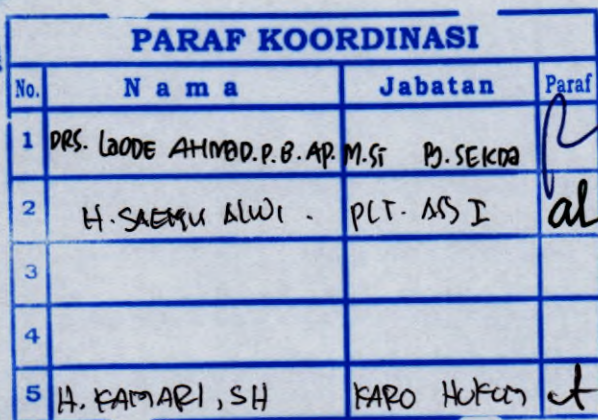 PARAF KOORDINASI
No. Nama Jabatan Paraf
1 DRS. LAODE AHMAD.P.B.AP. M.Si PJ. SEKDA
2 H. SAEMU ALWI. PLT. ASS I
3
4
5 H. KAMARI, SH KARO HUKUM